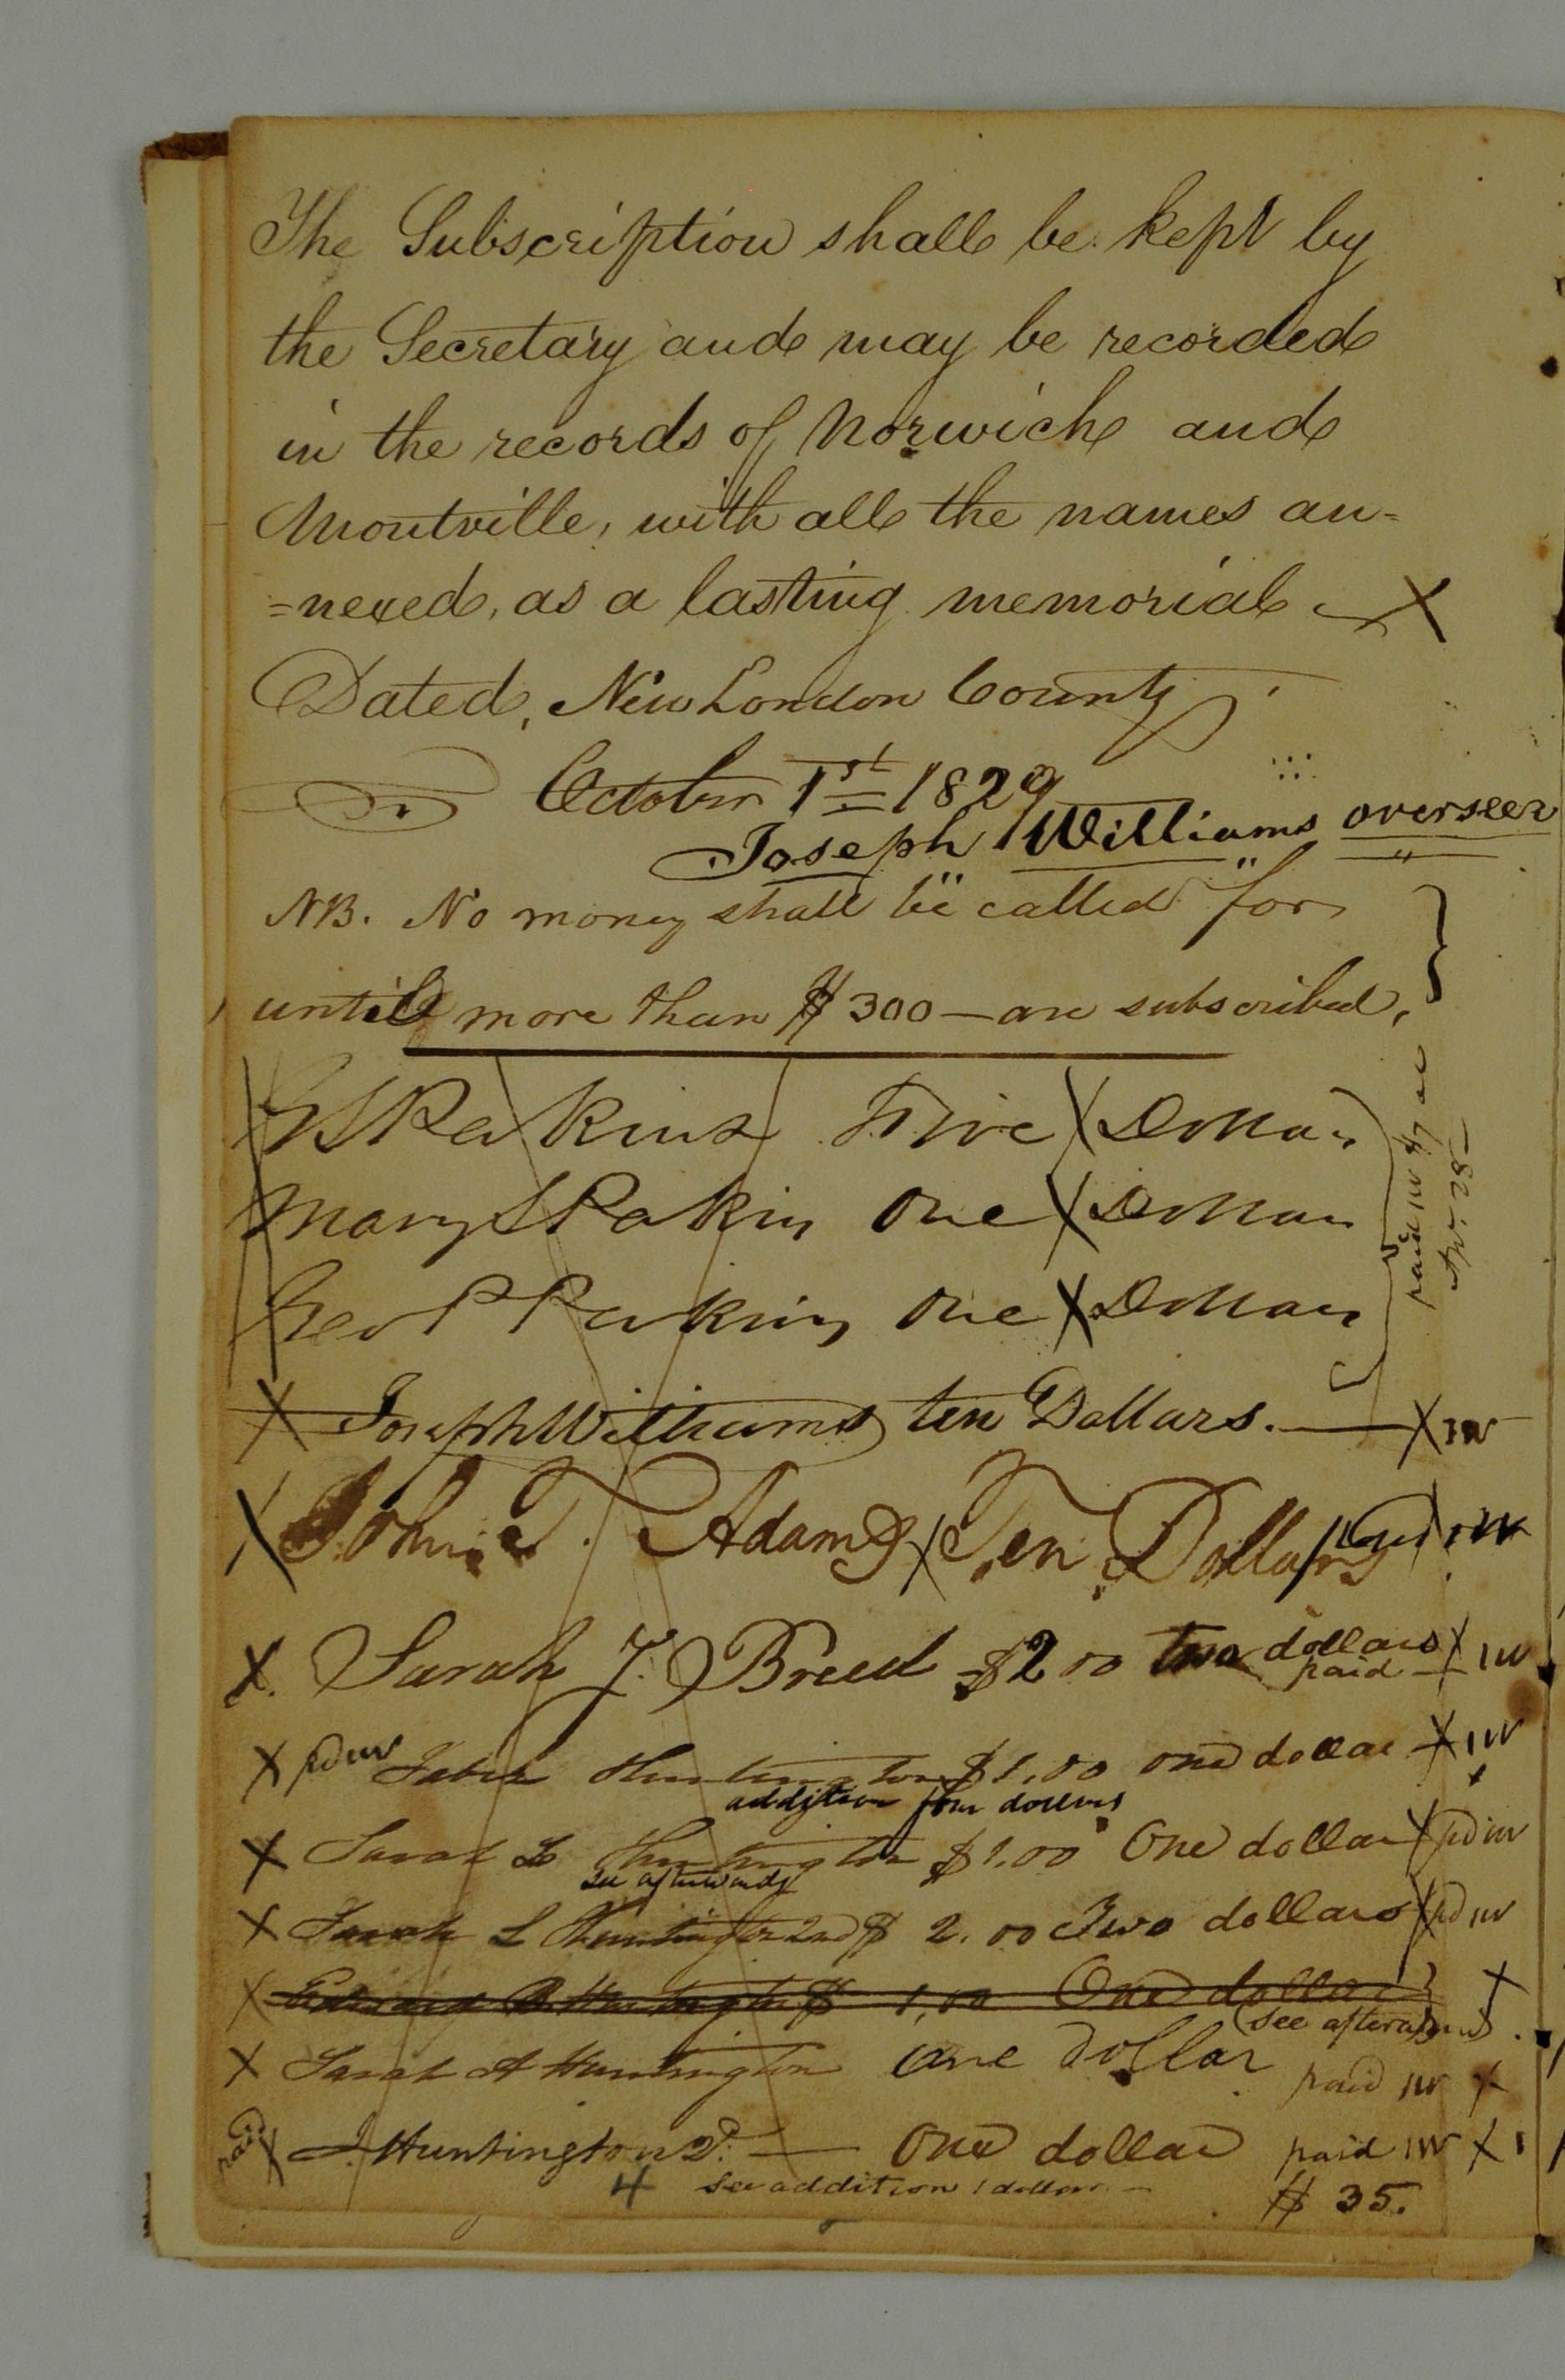 The Subscription shall be kept by
the Secretary and may be recorded
in the records of Norwich and
Montville, with all the names an=
=nexed, as a lasting memorial X
Dated, New London County
October 1st 1829
Joseph Williams overseer
NB. No money shall be called for
until more than $300 — are subscribed,
Perkins Five Dollars
Mary Perkins One Dollar
Geo Perkins One Dollar
paid
X Joseph Williams ten Dollars. — X JW
X John T. Adams X Ten Dollars JW
X Sarah J. Breed $2 00 two dollars X JW
paid
X Jabez Huntington $1,00 one dollar X JW
addition four dollars
X Sarah L Huntington $1.00 One dollar X pd JW
see afterwards
X Sarah L Huntington 2nd $ 2.00 Two dollars X pd JW
X Huntington $ 1,00 One dollar X
(see afterwards)
X Sarah A Huntington one dollar paid JW X
paid X J. Huntington 2d. — One dollar paid JW X
see addition 1 dollar —
$ 35.